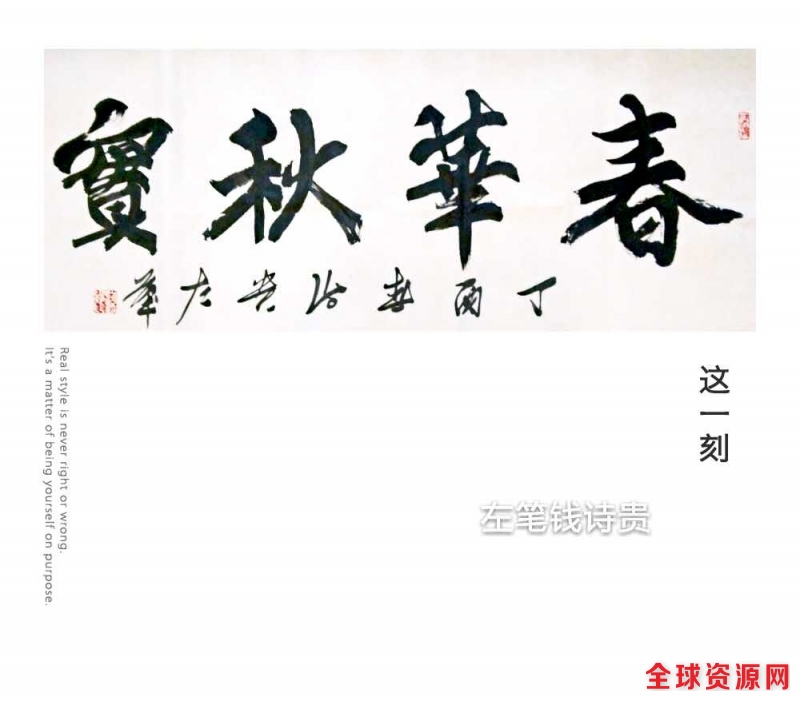 春華秋實
丁酉春詩贵左笔
这一刻
左笔钱诗贵
Real style is never right or wrong.
It's a matter of being yourself on purpose.
全球资源网